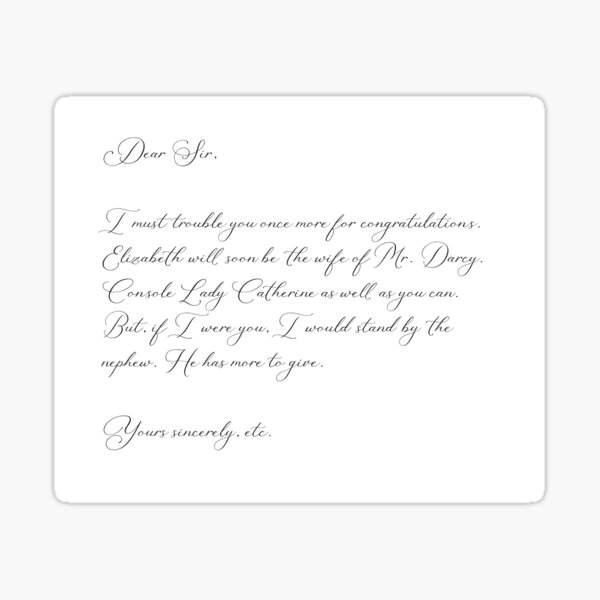 Dear Sir,
I must trouble you once more for congratulations.
Elizabeth will soon be the wife of Mr. Darcy.
Console Lady Catherine as well as you can.
But, if I were you, I would stand by the
nephew. He has more to give.
Yours sincerely, etc.